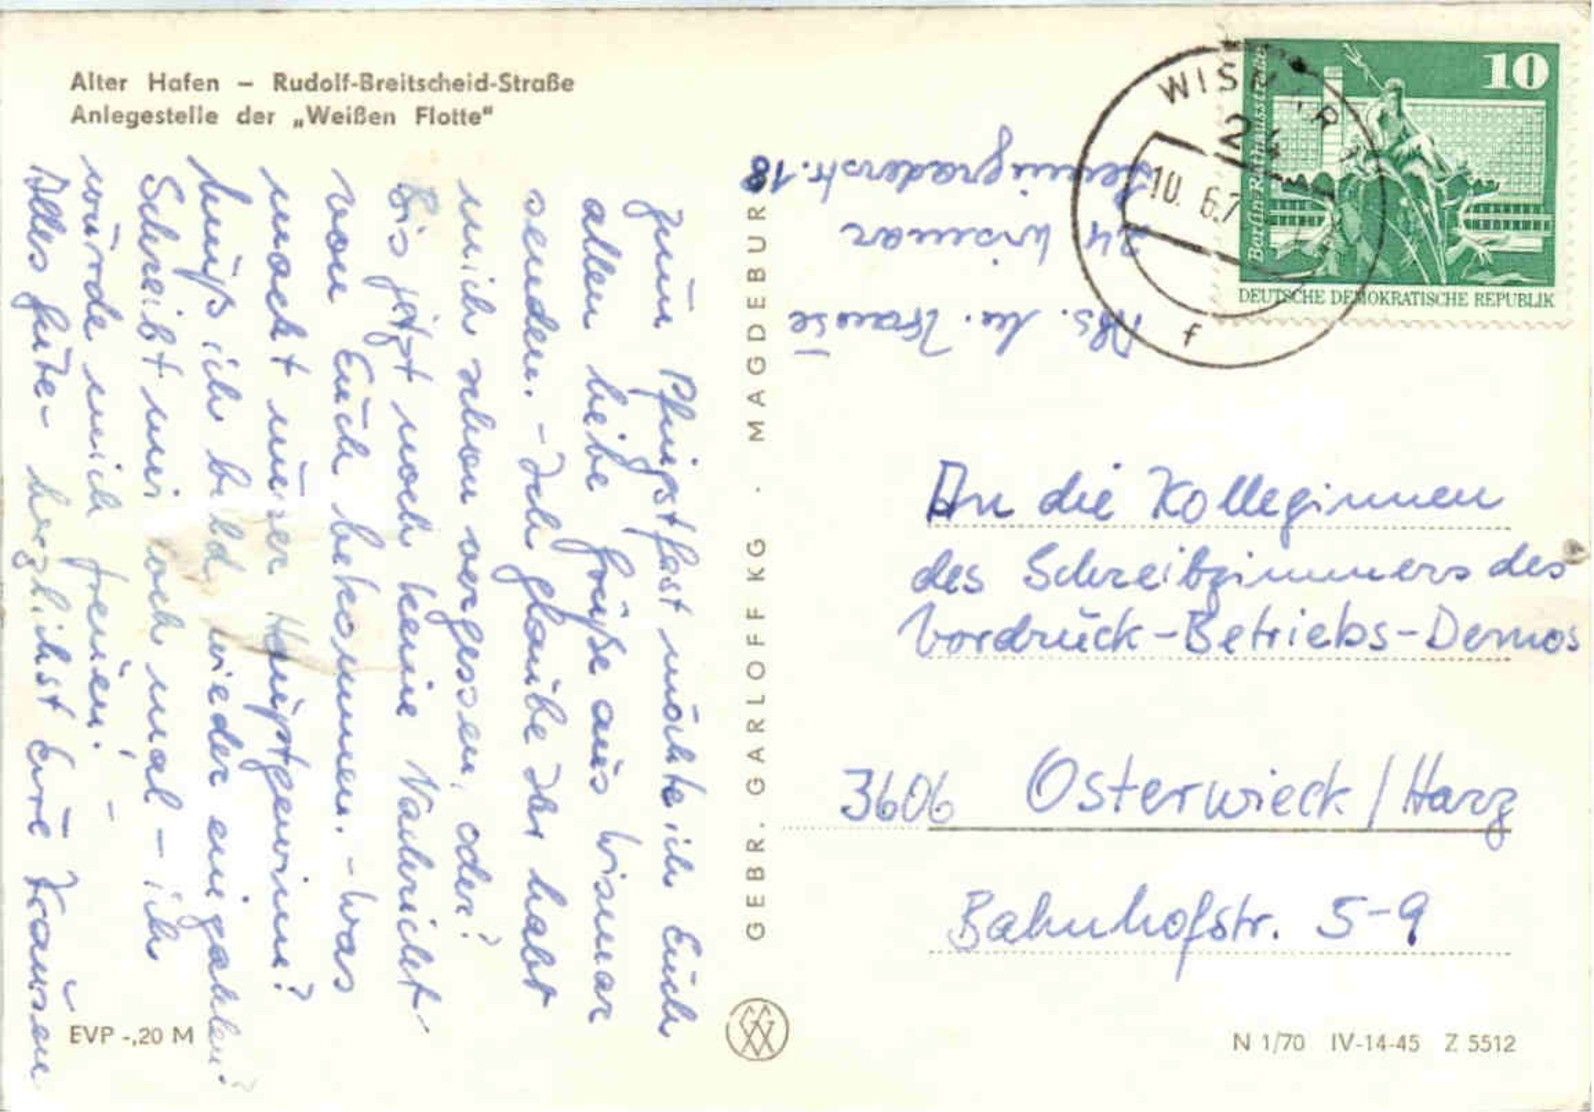 Alter Hafen – Rudolf-Breitscheid-Straße
Anlegestelle der „Weißen Flotte"
Zum Pfingstfest möchte ich Euch
allen liebe Grüße aus Wismar
senden. – Ich glaube Ihr habt
mich schon vergessen, oder?
Bis jetzt noch keine Nachricht
von Euch bekommen. – Was
macht unser Hauptgewinn?
Muß ich bald wieder einzahlen?
Schreibt mir doch mal – ich
würde mich freuen!
Alles Gute – herzlichst Eure Krausen
EVP -,20 M
GEBR. GARLOFF KG · MAGDEBURG
Abs. M. Krause
24 Wismar
Leningraderstr. 18
WISMAR 1
24
10. 6.7
f
10
Berlin-Rathausstraße
DEUTSCHE DEMOKRATISCHE REPUBLIK
An die Kolleginnen
des Schreibzimmers des
Vordruck-Betriebs-Demos
3606 Osterwieck/Harz
Bahnhofstr. 5-9
N 1/70 IV-14-45 Z 5512